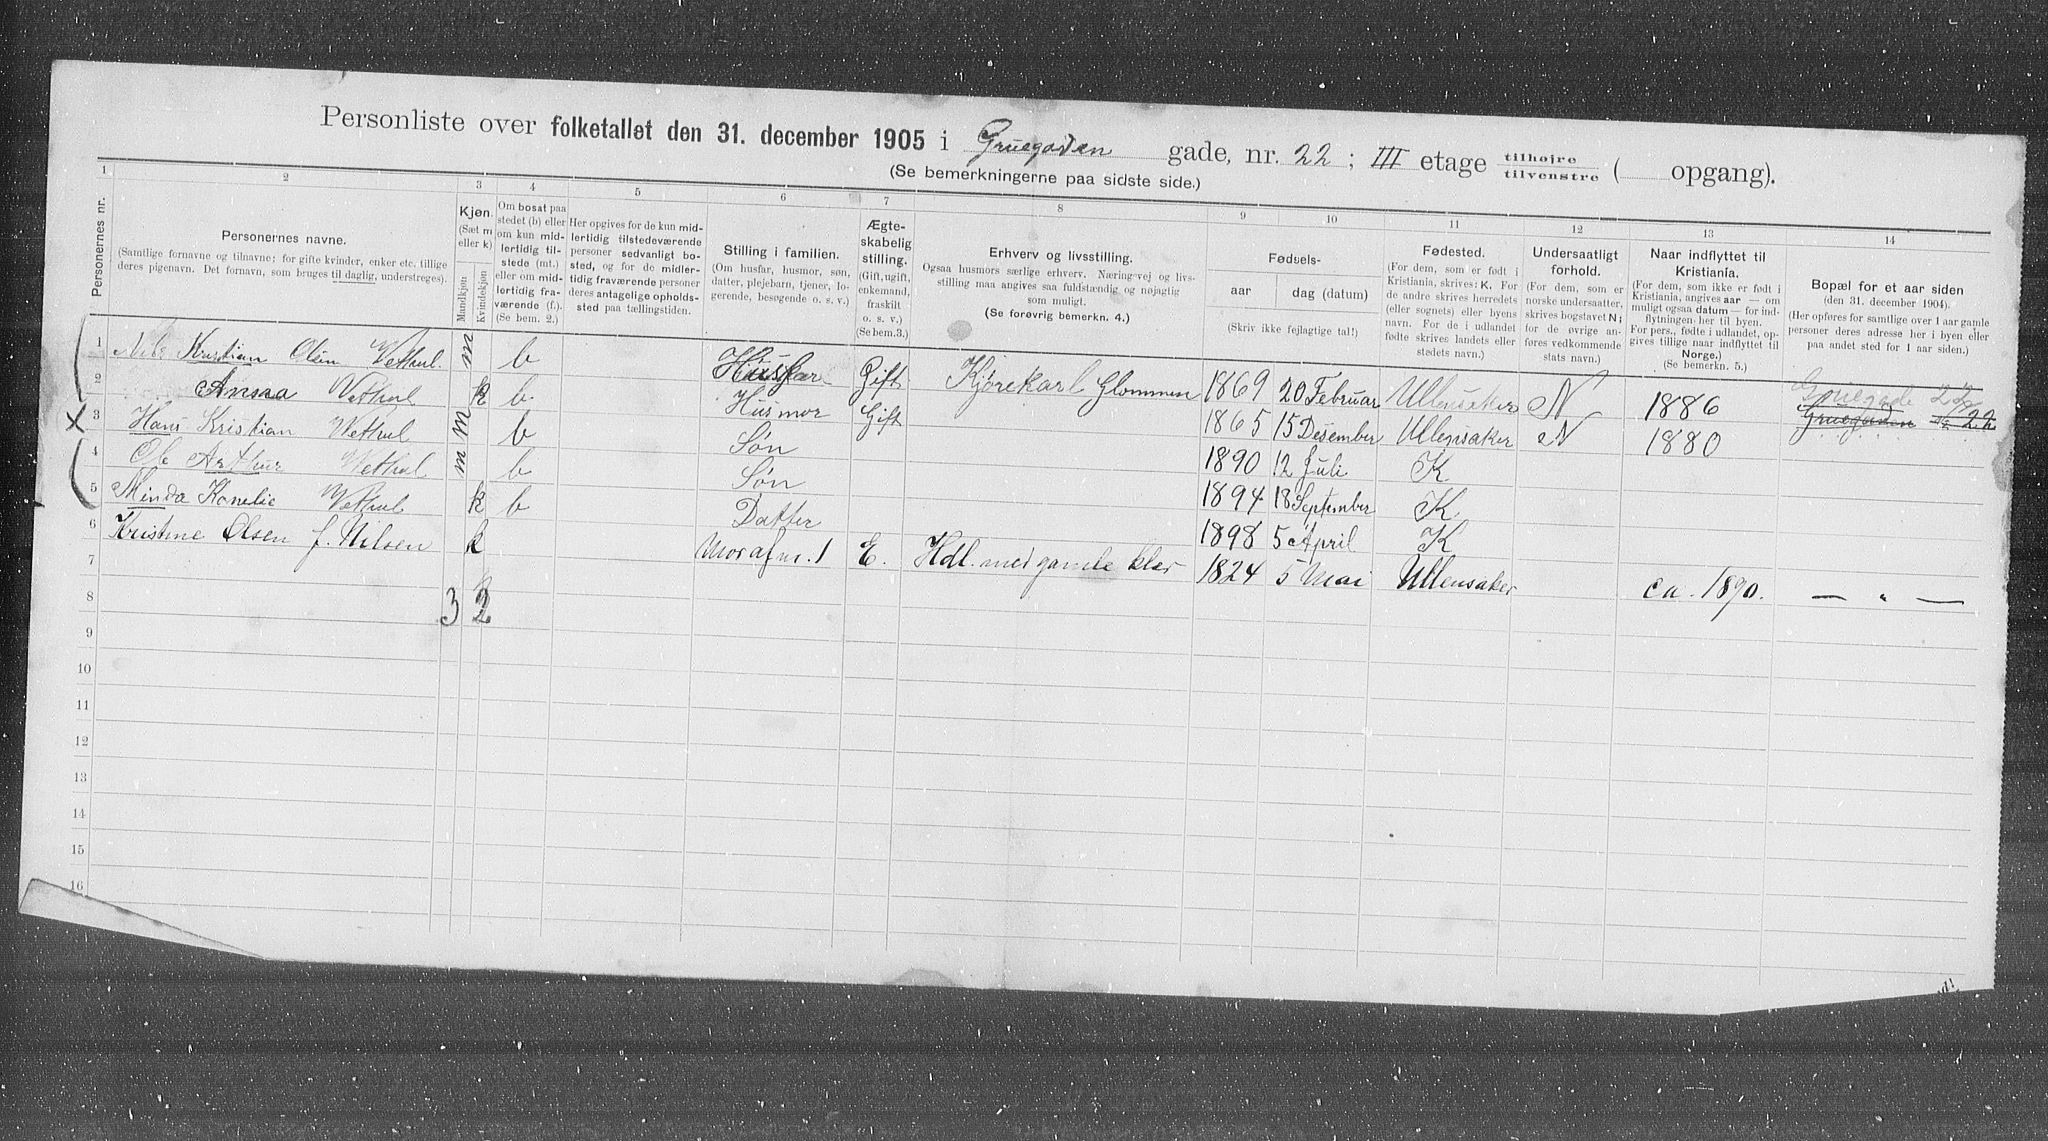 Personliste over folketallet den 31. december 1905 i Gruegaden gade, nr. 22; III etage tilhøjre tilvenstre ( opgang).
(Se bemerkningerne paa sidste side.)
1 2 3 4 5 6 7 8 9 10 11 12 13 14
Personernes nr.
Personernes navne.
(Samtlige fornavne og tilnavne; for gifte kvinder, enker etc. tillige
deres pigenavn. Det fornavn, som bruges til daglig, understreges).
Kjøn.
(Sæt m
eller k)
Mandkjøn
Kvindekjøn
Om bosat paa
stedet (b) eller
om kun mid-
lertidig til-
stede (mt.)
eller om mid-
lertidig fra-
værende (f.).
(Se bem. 2.)
Her opgives for de kun mid-
lertidig tilstedeværende
personer sedvanligt bo-
sted, og for de midler-
tidig fraværende personer
deres antagelige opholds-
sted paa tællingstiden.
Stilling i familien.
(Om husfar, husmor, søn,
datter, plejebarn, tjener, lo-
gerende, besøgende o. s. v.)
Ægte-
skabelig
stilling.
(Gift, ugift,
enkemand,
fraskilt
o. s. v.)
(Se bem. 3.)
Erhverv og livsstilling.
Ogsaa husmors særlige erhverv. Næringsvej og livs-
stilling maa angives saa fuldstændig og nøjagtig
som muligt.
(Se forøvrig bemerkn. 4.)
Fødsels-
aar
dag (datum)
(Skriv ikke fejlagtige tal!)
Fødested.
(For dem, som er født i
Kristiania, skrives: K. For
de andre skrives herredets
(eller sognets) eller byens
navn. For de i udlandet
fødte skrives landets eller
stedets navn.)
Undersaatligt
forhold.
(For dem, som er
norske undersaatter,
skrives bogstavet N;
for de øvrige an-
føres vedkommende
stats navn.)
Naar indflyttet til
Kristiania.
(For dem, som ikke er født i
Kristiania, angives aar — om
muligt ogsaa datum — for ind-
flytningen her til byen.
For pers., fødte i udlandet, op-
gives tillige naar indflyttet til
Norge.)
(Se bemerkn. 5.)
Bopæl for et aar siden
(den 31. december 1904).
(Her opføres for samtlige over 1 aar gamle
personer deres adresse her i byen eller
paa andet sted for 1 aar siden.)
1 Nils Kristian Olsen Wethal. m b Husfar Gift Kjørekarl Glommen 1869 20 Februar Ullensaker N 1886 Gruegade 22
2 Anna Wethal k b Husmor Gift 1865 15 Desember Ullensaker N 1880 Gruegaden 22
3 Hans Kristian Wethal m b Søn 1890 12 Juli K
4 Ole Arthur Wethal m b Søn 1894 18 September K
5 Minda Kornelie Wethal k b Datter 1898 5 April K
6 Kristine Olsen f. Nilsen k Mor af nr. 1 E. Hdl. med gamle klær 1824 5 Mai Ullensaker ca. 1890. — " —
7
8 3 2
9
10
11
12
13
14
15
16